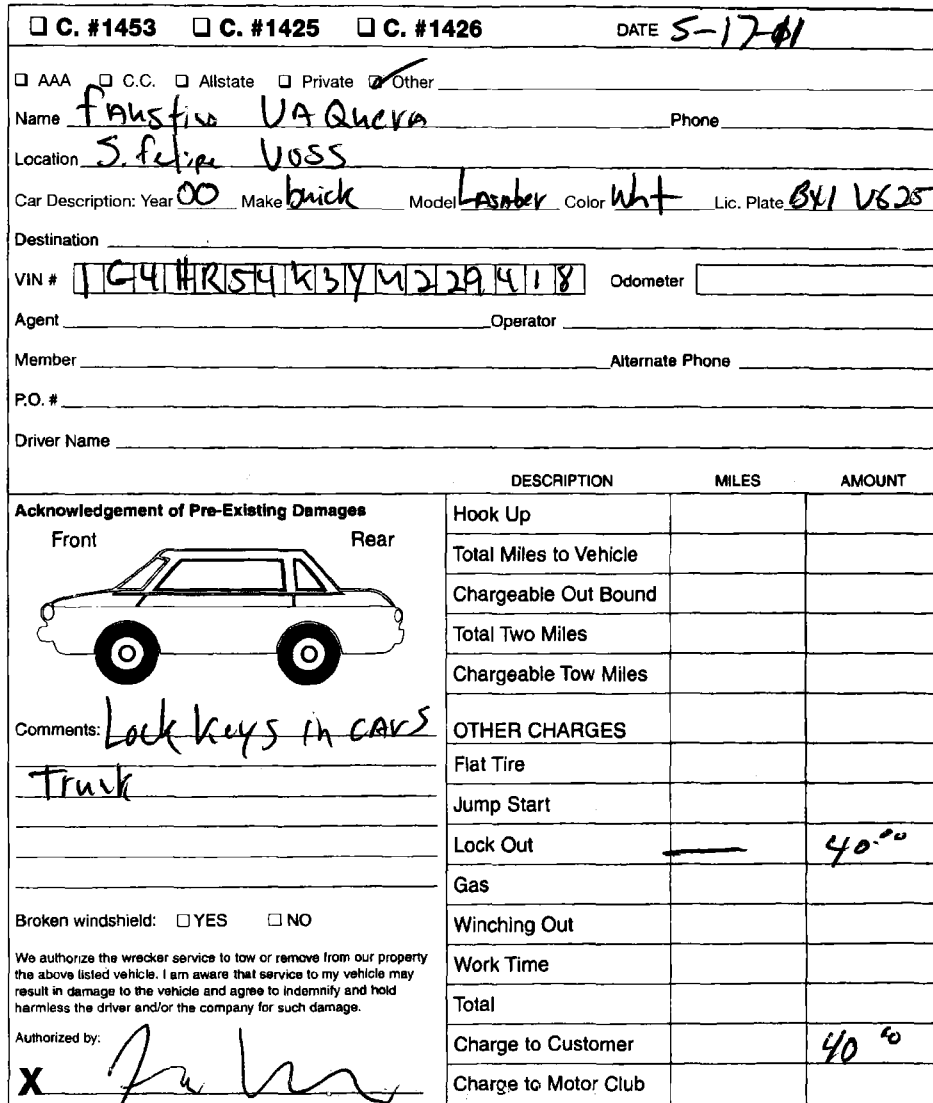 ☐ C. #1453 ☐ C. #1425 ☐ C. #1426 DATE 5-17-01
☐ AAA ☐ C.C. ☐ Allstate ☐ Private ☑ Other
Name FAustino VAQuera Phone
Location S. felipe VOSS
Car Description: Year 00 Make buick Model LASAber Color Wht Lic. Plate BX1 V625
Destination
VIN # 1G4HR54K3YU229418 Odometer
Agent Operator
Member Alternate Phone
P.O. #
Driver Name
DESCRIPTION MILES AMOUNT
Acknowledgement of Pre-Existing Damages
Front Rear
Comments: Lock keys in CArs
Trunk
Broken windshield: ☐ YES ☐ NO
We authorize the wrecker service to tow or remove from our property
the above listed vehicle. I am aware that service to my vehicle may
result in damage to the vehicle and agree to indemnify and hold
harmless the driver and/or the company for such damage.
Authorized by:
X
Hook Up
Total Miles to Vehicle
Chargeable Out Bound
Total Two Miles
Chargeable Tow Miles
OTHER CHARGES
Flat Tire
Jump Start
Lock Out — 40.00
Gas
Winching Out
Work Time
Total
Charge to Customer 40 00
Charge to Motor Club